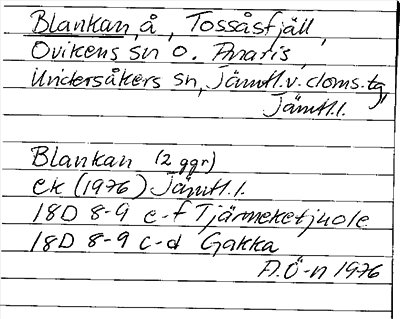 Blankan, å, Tossåsfjäll,
Ovikens sn o. Anaris,
Undersåkers sn, Jämtl.v.doms.tg,
Jämtl.l.
Blankan (2 ggr)
ek (1976) Jämtl.l.
18D 8-9 e-f Tjärmeketjuole
18D 8-9 c-d Gakka
A.Ö-n 1976